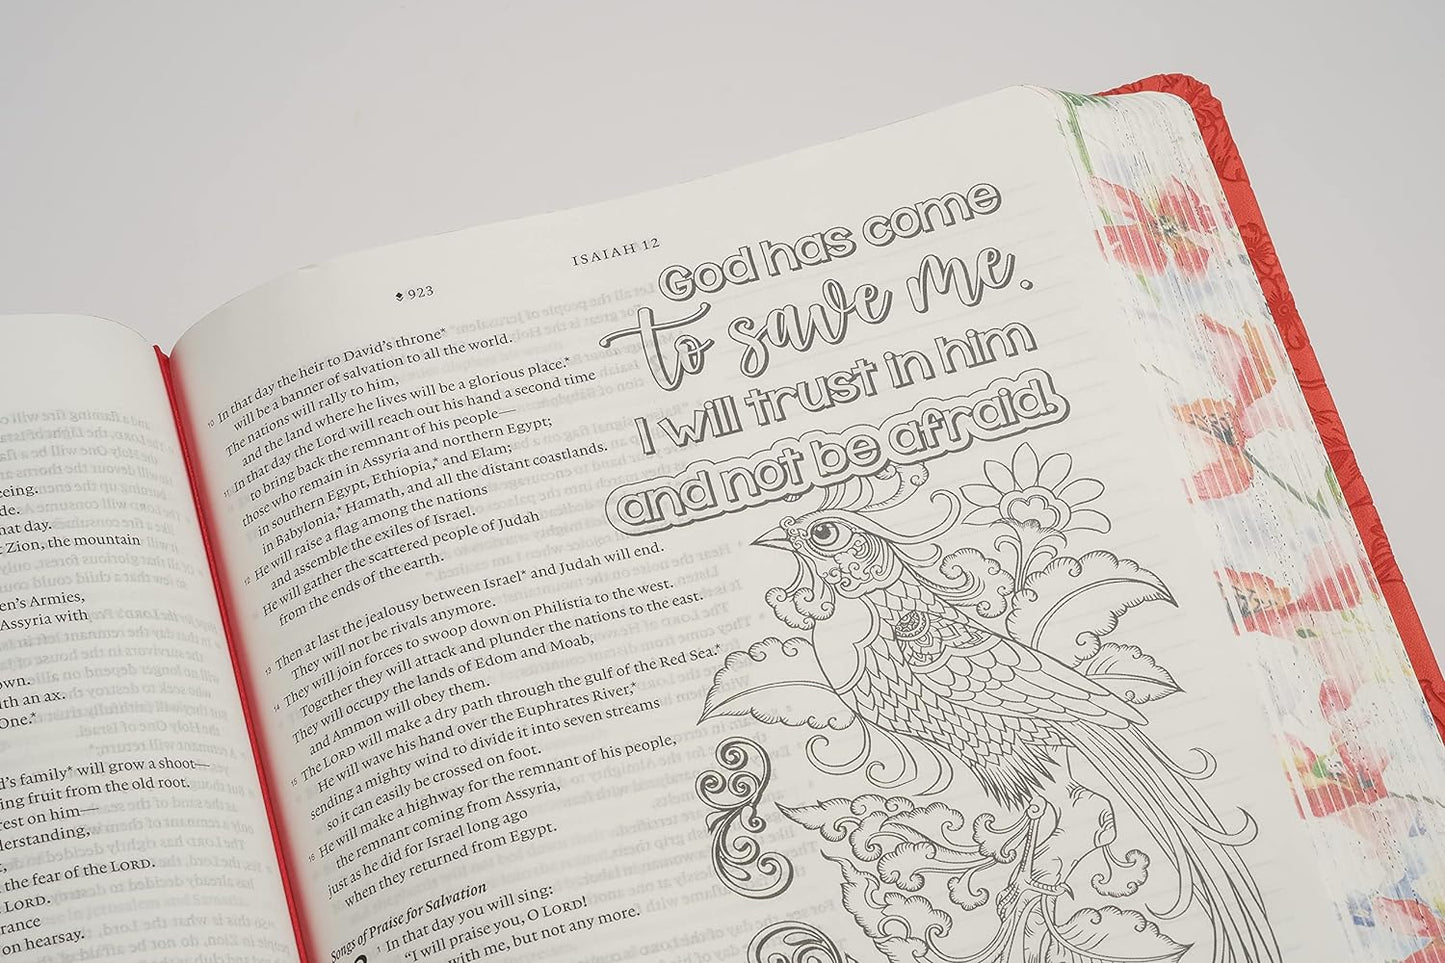 eeing.
de.
hat day.
t Zion, the mountain
en's Armies,
Assyria with
own.
ith an ax.
One.*
d's family* will grow a shoot—
ing fruit from the old root.
rest on him—
derstanding,
the fear of the LORD.
LORD.
rance
on hearsay.
923
ISAIAH 12
10 In that day the heir to David's throne*
will be a banner of salvation to all the world.
The nations will rally to him,
and the land where he lives will be a glorious place.*
11 In that day the Lord will reach out his hand a second time
to bring back the remnant of his people—
those who remain in Assyria and northern Egypt;
in southern Egypt, Ethiopia,* and Elam;
in Babylonia,* Hamath, and all the distant coastlands.
12 He will raise a flag among the nations
and assemble the exiles of Israel.
He will gather the scattered people of Judah
from the ends of the earth.
13 Then at last the jealousy between Israel* and Judah will end.
They will not be rivals anymore.
14 They will join forces to swoop down on Philistia to the west.
Together they will attack and plunder the nations to the east.
They will occupy the lands of Edom and Moab,
and Ammon will obey them.
15 The LORD will make a dry path through the gulf of the Red Sea.*
He will wave his hand over the Euphrates River,*
sending a mighty wind to divide it into seven streams
so it can easily be crossed on foot.
16 He will make a highway for the remnant of his people,
the remnant coming from Assyria,
just as he did for Israel long ago
when they returned from Egypt.
Songs of Praise for Salvation
1 In that day you will sing:
"I will praise you, O LORD!
with me, but not any more.
God has come
to save me.
I will trust in him
and not be afraid.